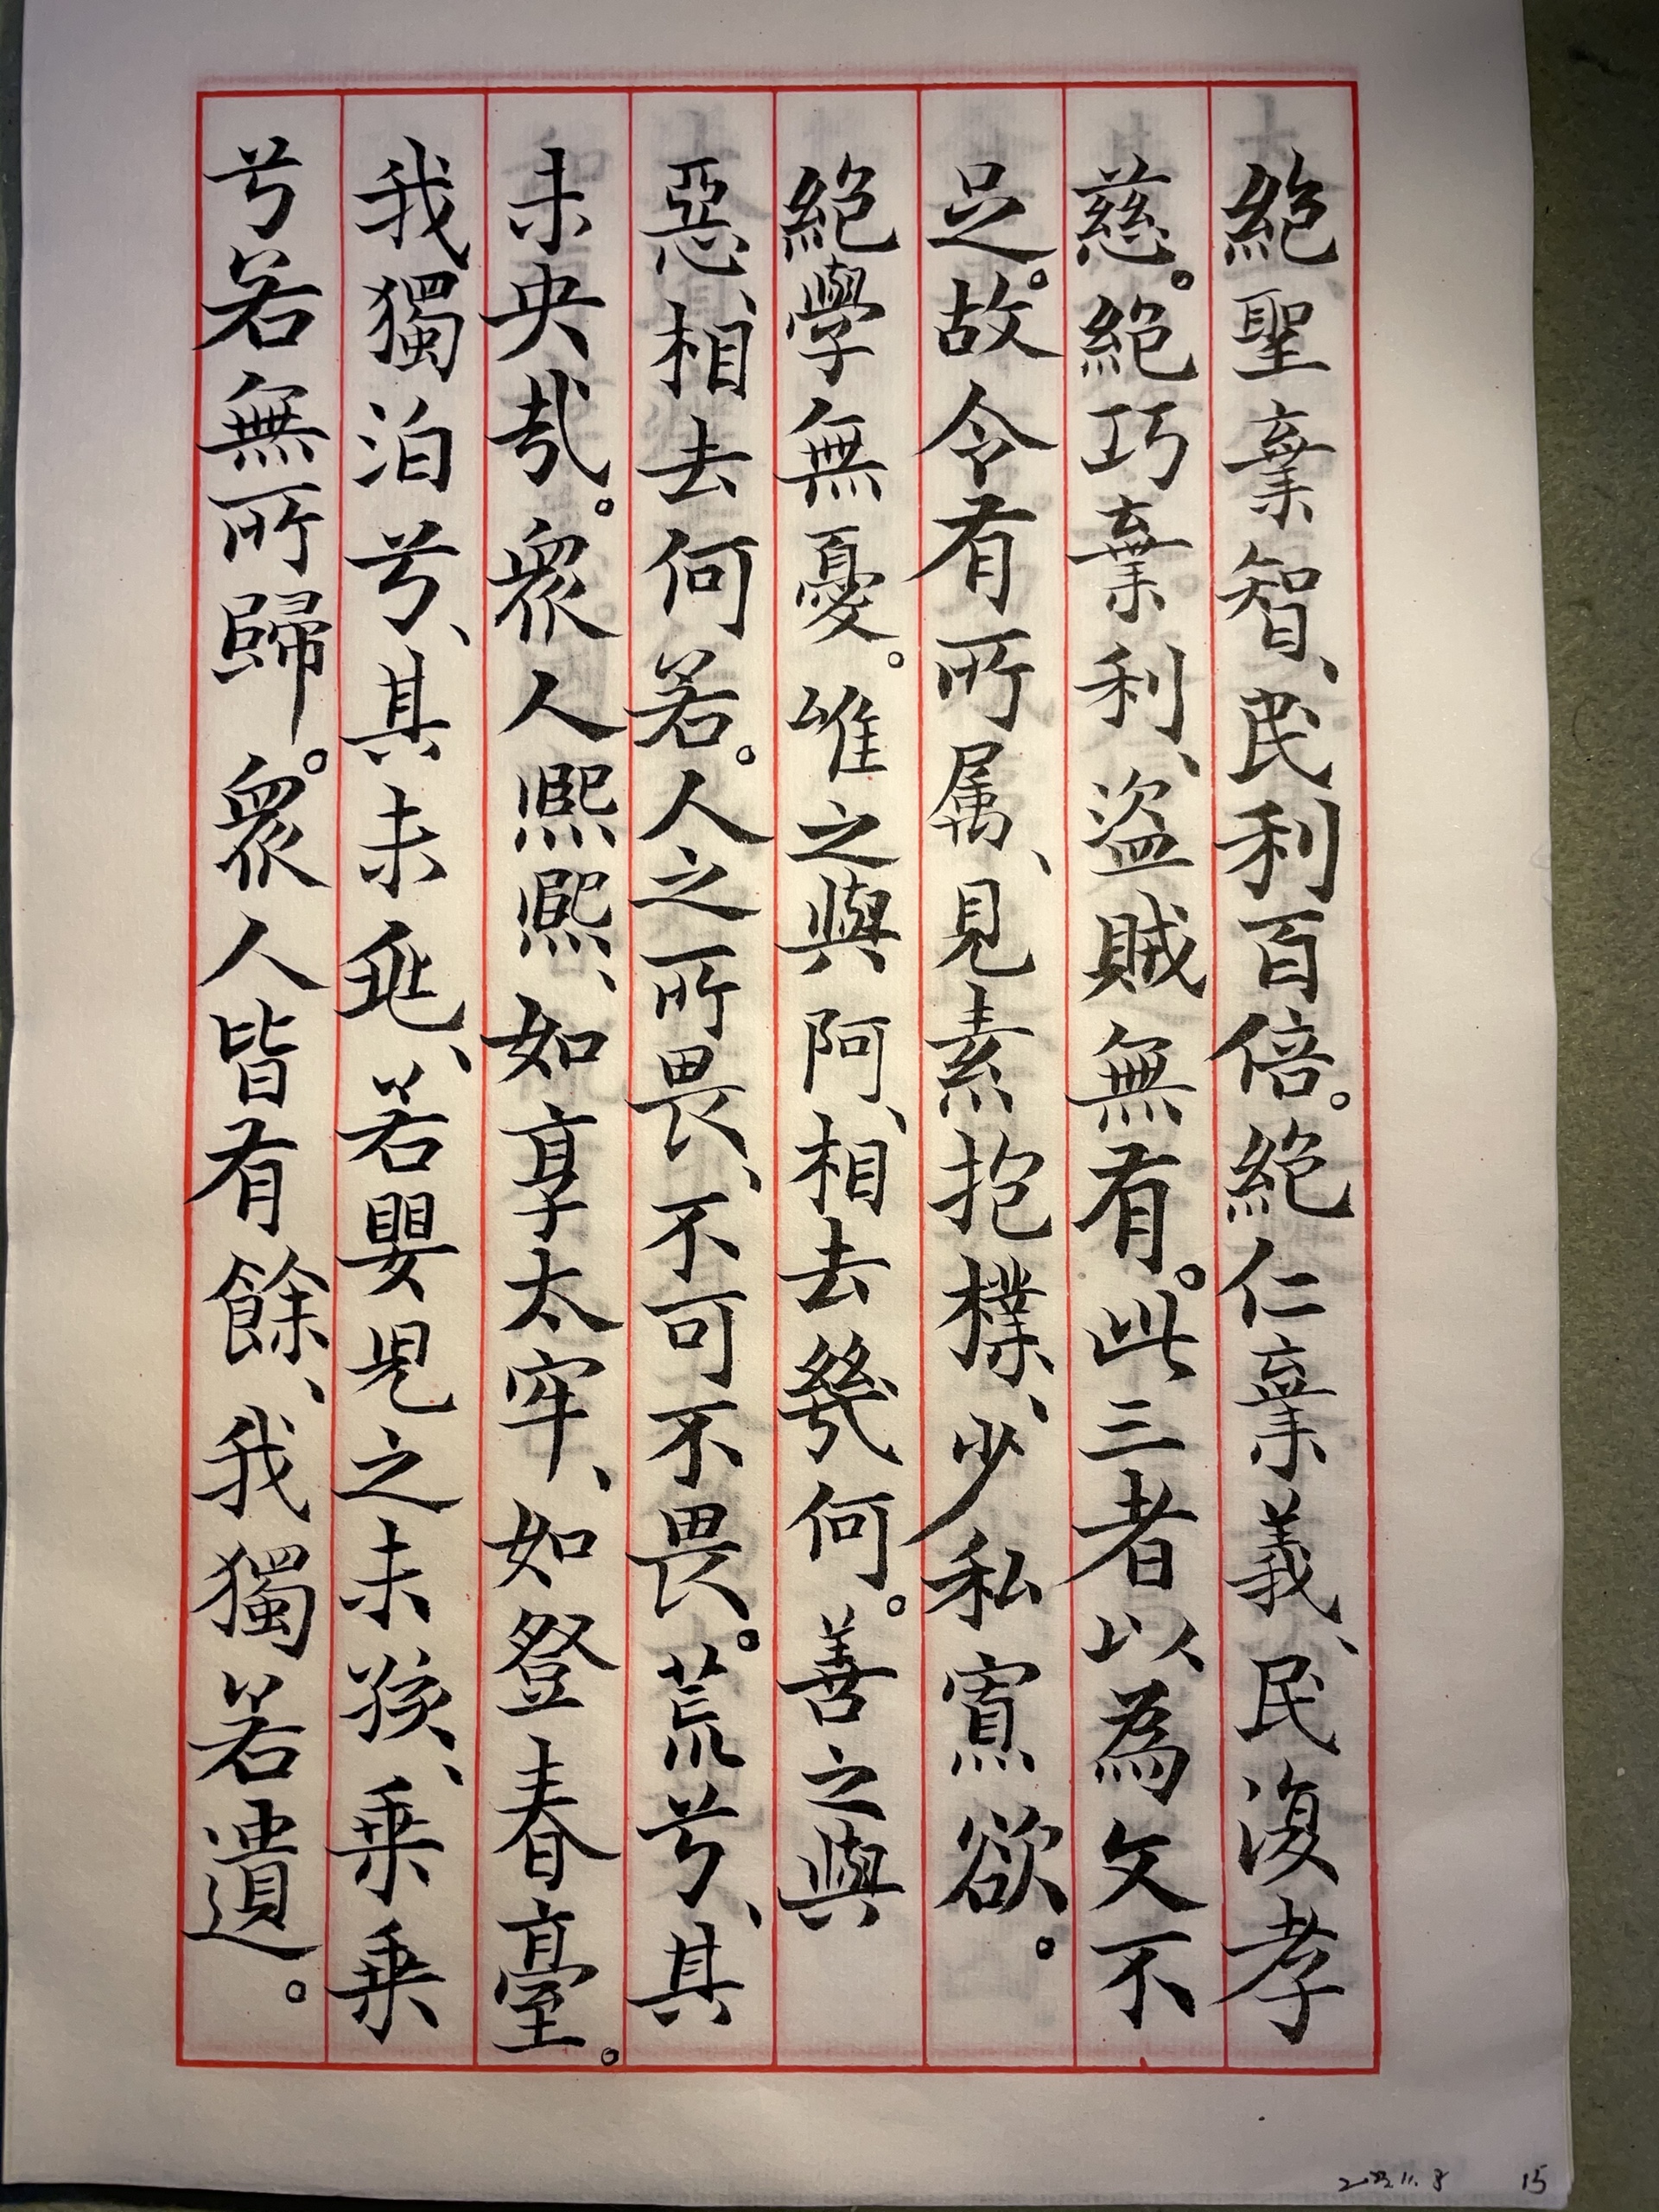 絕聖棄智、民利百倍。絕仁棄義、民復孝
慈。絕巧棄利、盜賊無有。此三者以為文不
足。故令有所属、見素抱樸、少私寡欲。
絕學無憂。唯之與阿、相去幾何。善之與
惡、相去何若。人之所畏、不可不畏。荒兮、其
未央哉。衆人熙熙、如享太牢、如登春臺。
我獨泊兮、其未兆、若嬰兒之未孩、乗乗
兮若無所歸。衆人皆有餘、我獨若遺。
2023.11.8 15